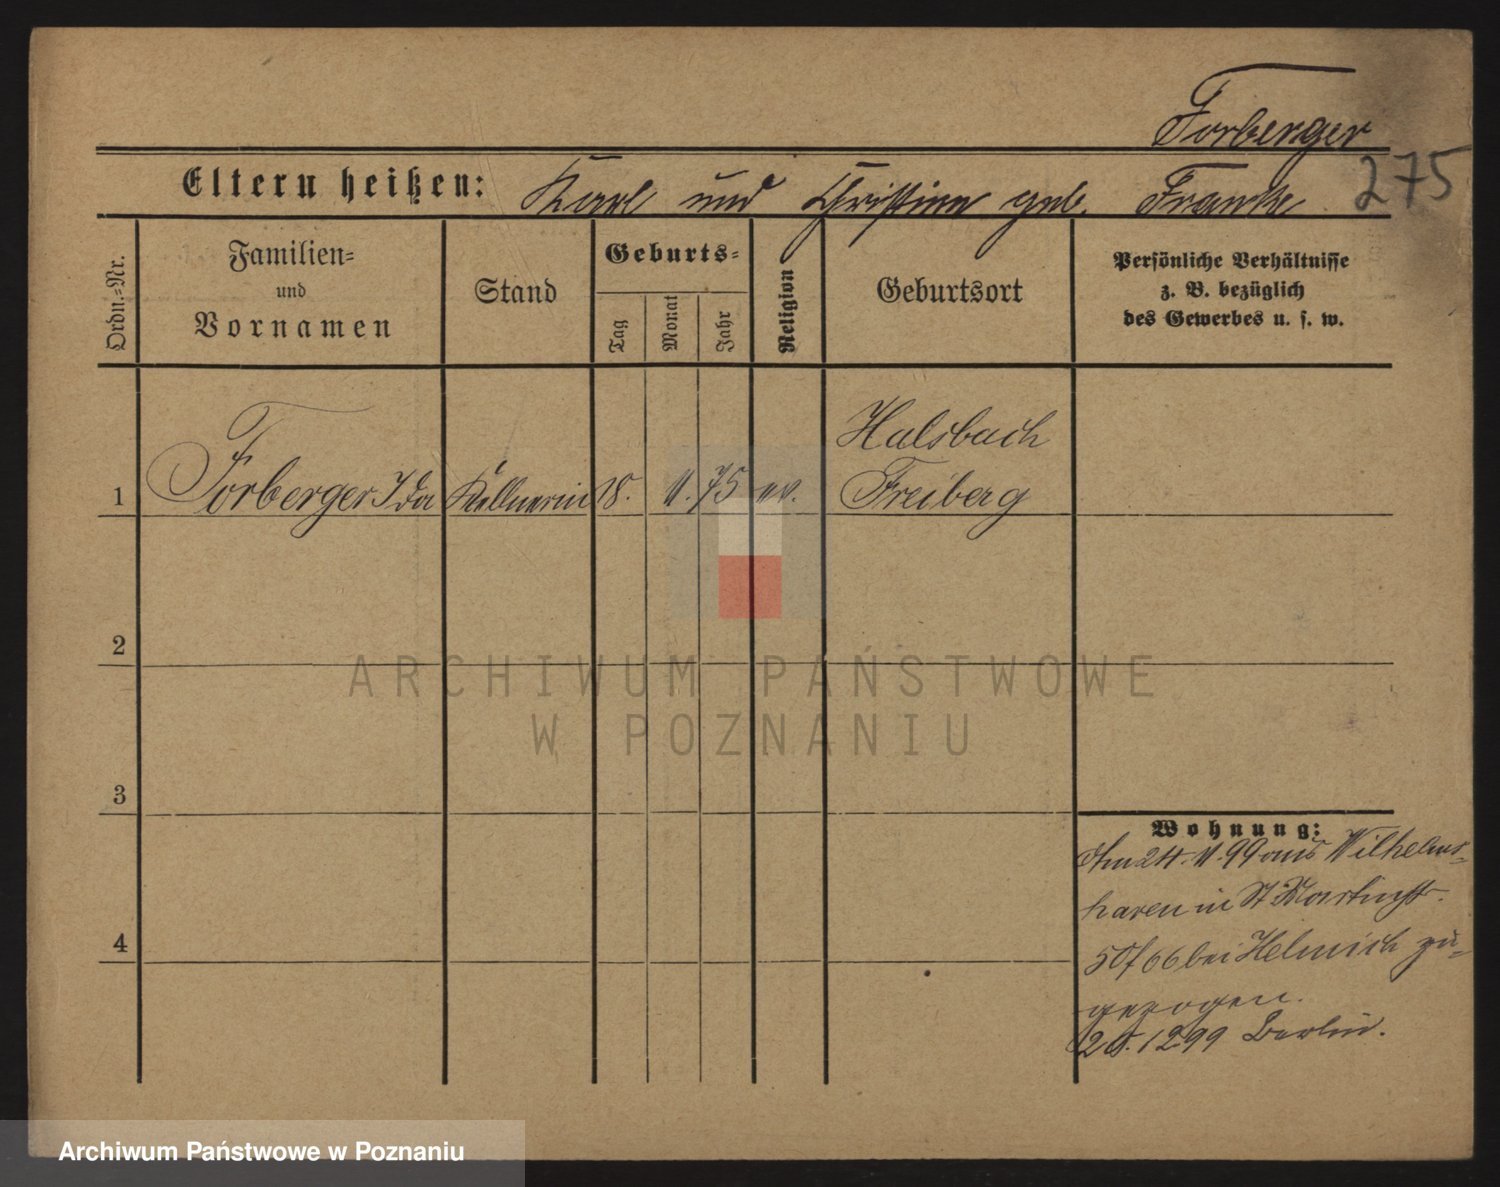 Forberger
275
Eltern heißen: Karl und Christine geb. Franke
Ordn.-Nr.
Familien- und Vornamen
Stand
Geburts-
Tag
Monat
Jahr
Religion
Geburtsort
Persönliche Verhältnisse
z. B. bezüglich
des Gewerbes u. s. w.
Halsbach
1 Forberger Ida Kellnerin 18. 11. 75 ev. Freiberg
2
ARCHIWUM PAŃSTWOWE
W POZNANIU
3
Wohnung:
Am 24. 11. 99 aus Wilhelms-
haven in St Martinstr.
50/66 bei Helmich zu-
gezogen.
12 99 Berlin.
4
Archiwum Państwowe w Poznaniu